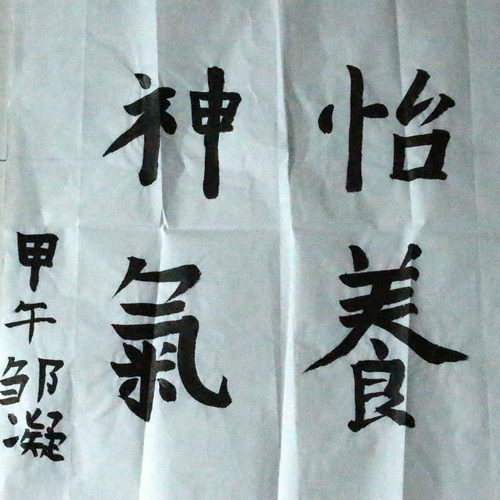 怡養
神氣
甲午邹凝